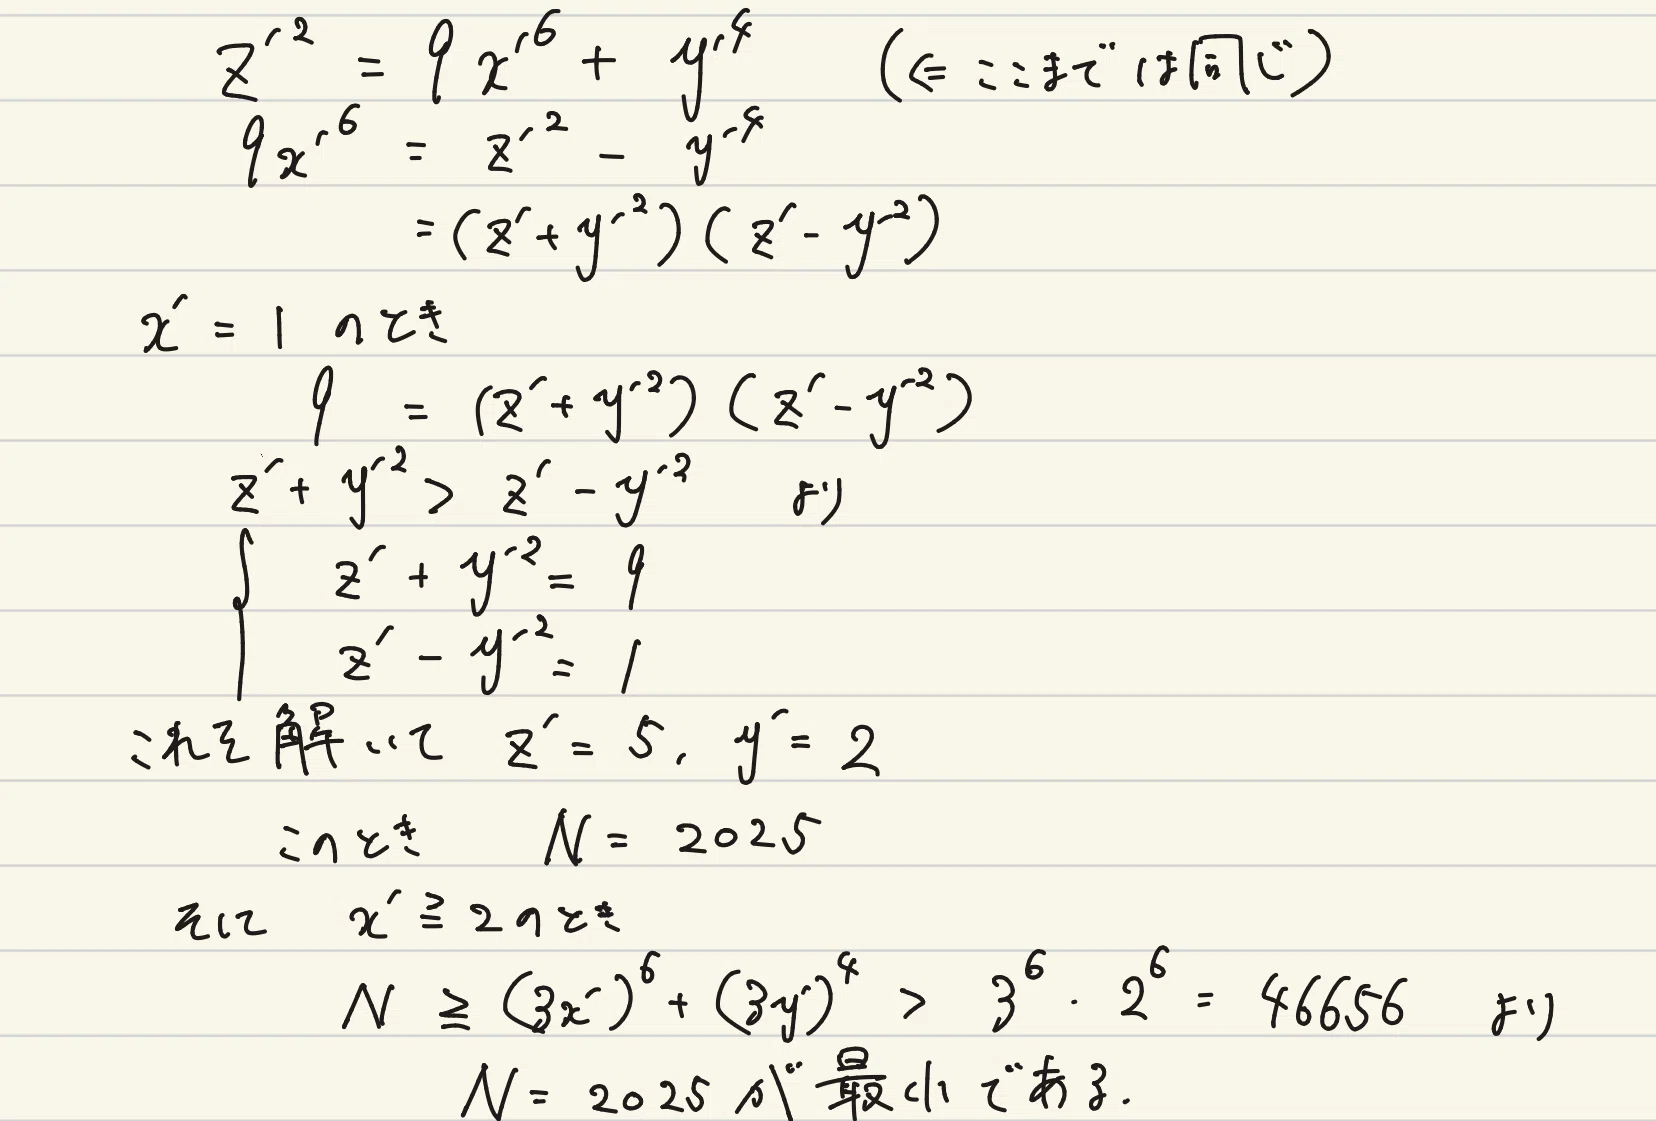 z'² = 9x'⁶ + y'⁴ (⇐ ここまでは同じ)
9x'⁶ = z'² - y'⁴
= (z' + y'²)(z' - y'²)
x' = 1 のとき
9 = (z' + y'²)(z' - y'²)
z' + y'² > z' - y'² より
{ z' + y'² = 9
z' - y'² = 1
これを解いて z' = 5, y' = 2
このとき N = 2025
そして x' ≧ 2 のとき
N ≧ (3x')⁶ + (3y')⁴ > 3⁶ · 2⁶ = 46656 より
N = 2025 が最小である.